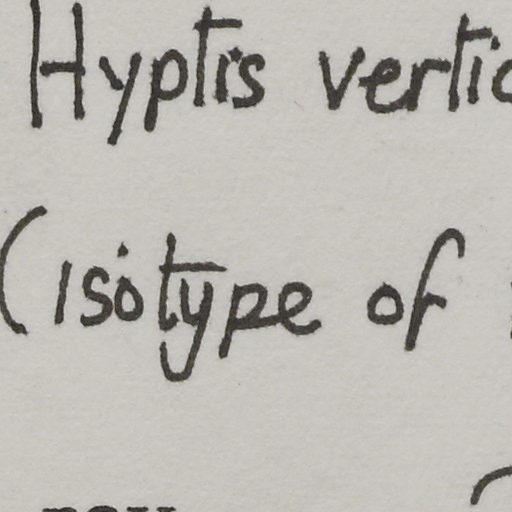 Hyptis vertic
(isotype of